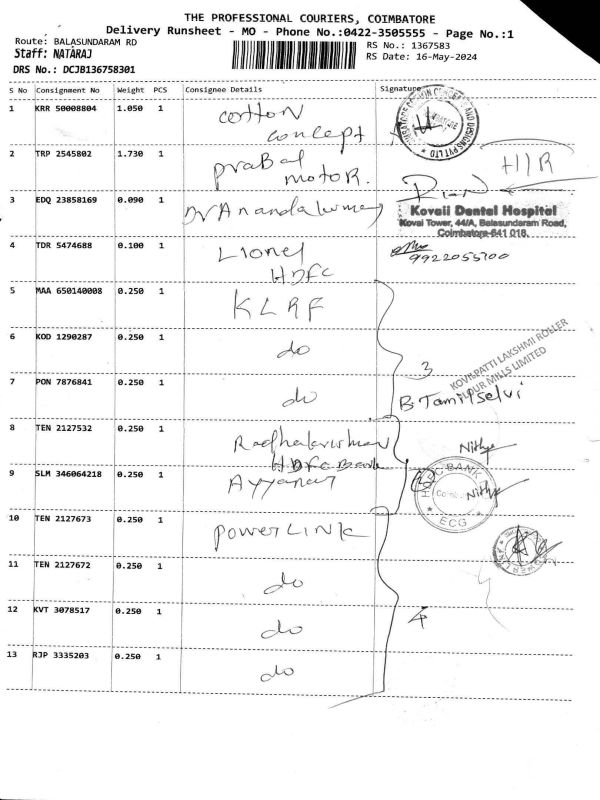 THE PROFESSIONAL COURIERS, COIMBATORE
Delivery Runsheet - MO - Phone No.:0422-3505555 - Page No.:1
Route: BALASUNDARAM RD
RS No.: 1367583
Staff: NATARAJ
RS Date: 16-May-2024
DRS No.: DCJB136758301
S No Consignment No Weight PCS Consignee Details Signature
1 KRR 50008804 1.050 1 cotton
concept
2 TRP 2545802 1.730 1 praBal
motor.
HIR
3 EDQ 23858169 0.090 1 Dr Anandakumar
Kovaii Dental Hospital
Kovai Tower, 44/A, Balasundaram Road,
Coimbatore-641 018.
4 TDR 5474688 0.100 1 Lionel
HDFC
9922055700
5 MAA 650140008 0.250 1 KLRF
6 KOD 1290287 0.250 1 do
3
KOVILPATTI LAKSHMI ROLLER
FLOUR MILLS LIMITED
7 PON 7876841 0.250 1 do
B. Tamilselvi
8 TEN 2127532 0.250 1 Radhakrishnan
HDFC Bank
Nithya
9 SLM 346064218 0.250 1 Ayyanar
2
HDFC BANK
Nithya
★ ECG ★
10 TEN 2127673 0.250 1 POWERLINK
11 TEN 2127672 0.250 1 do
12 KVT 3078517 0.250 1 do
4
13 RJP 3335203 0.250 1 do